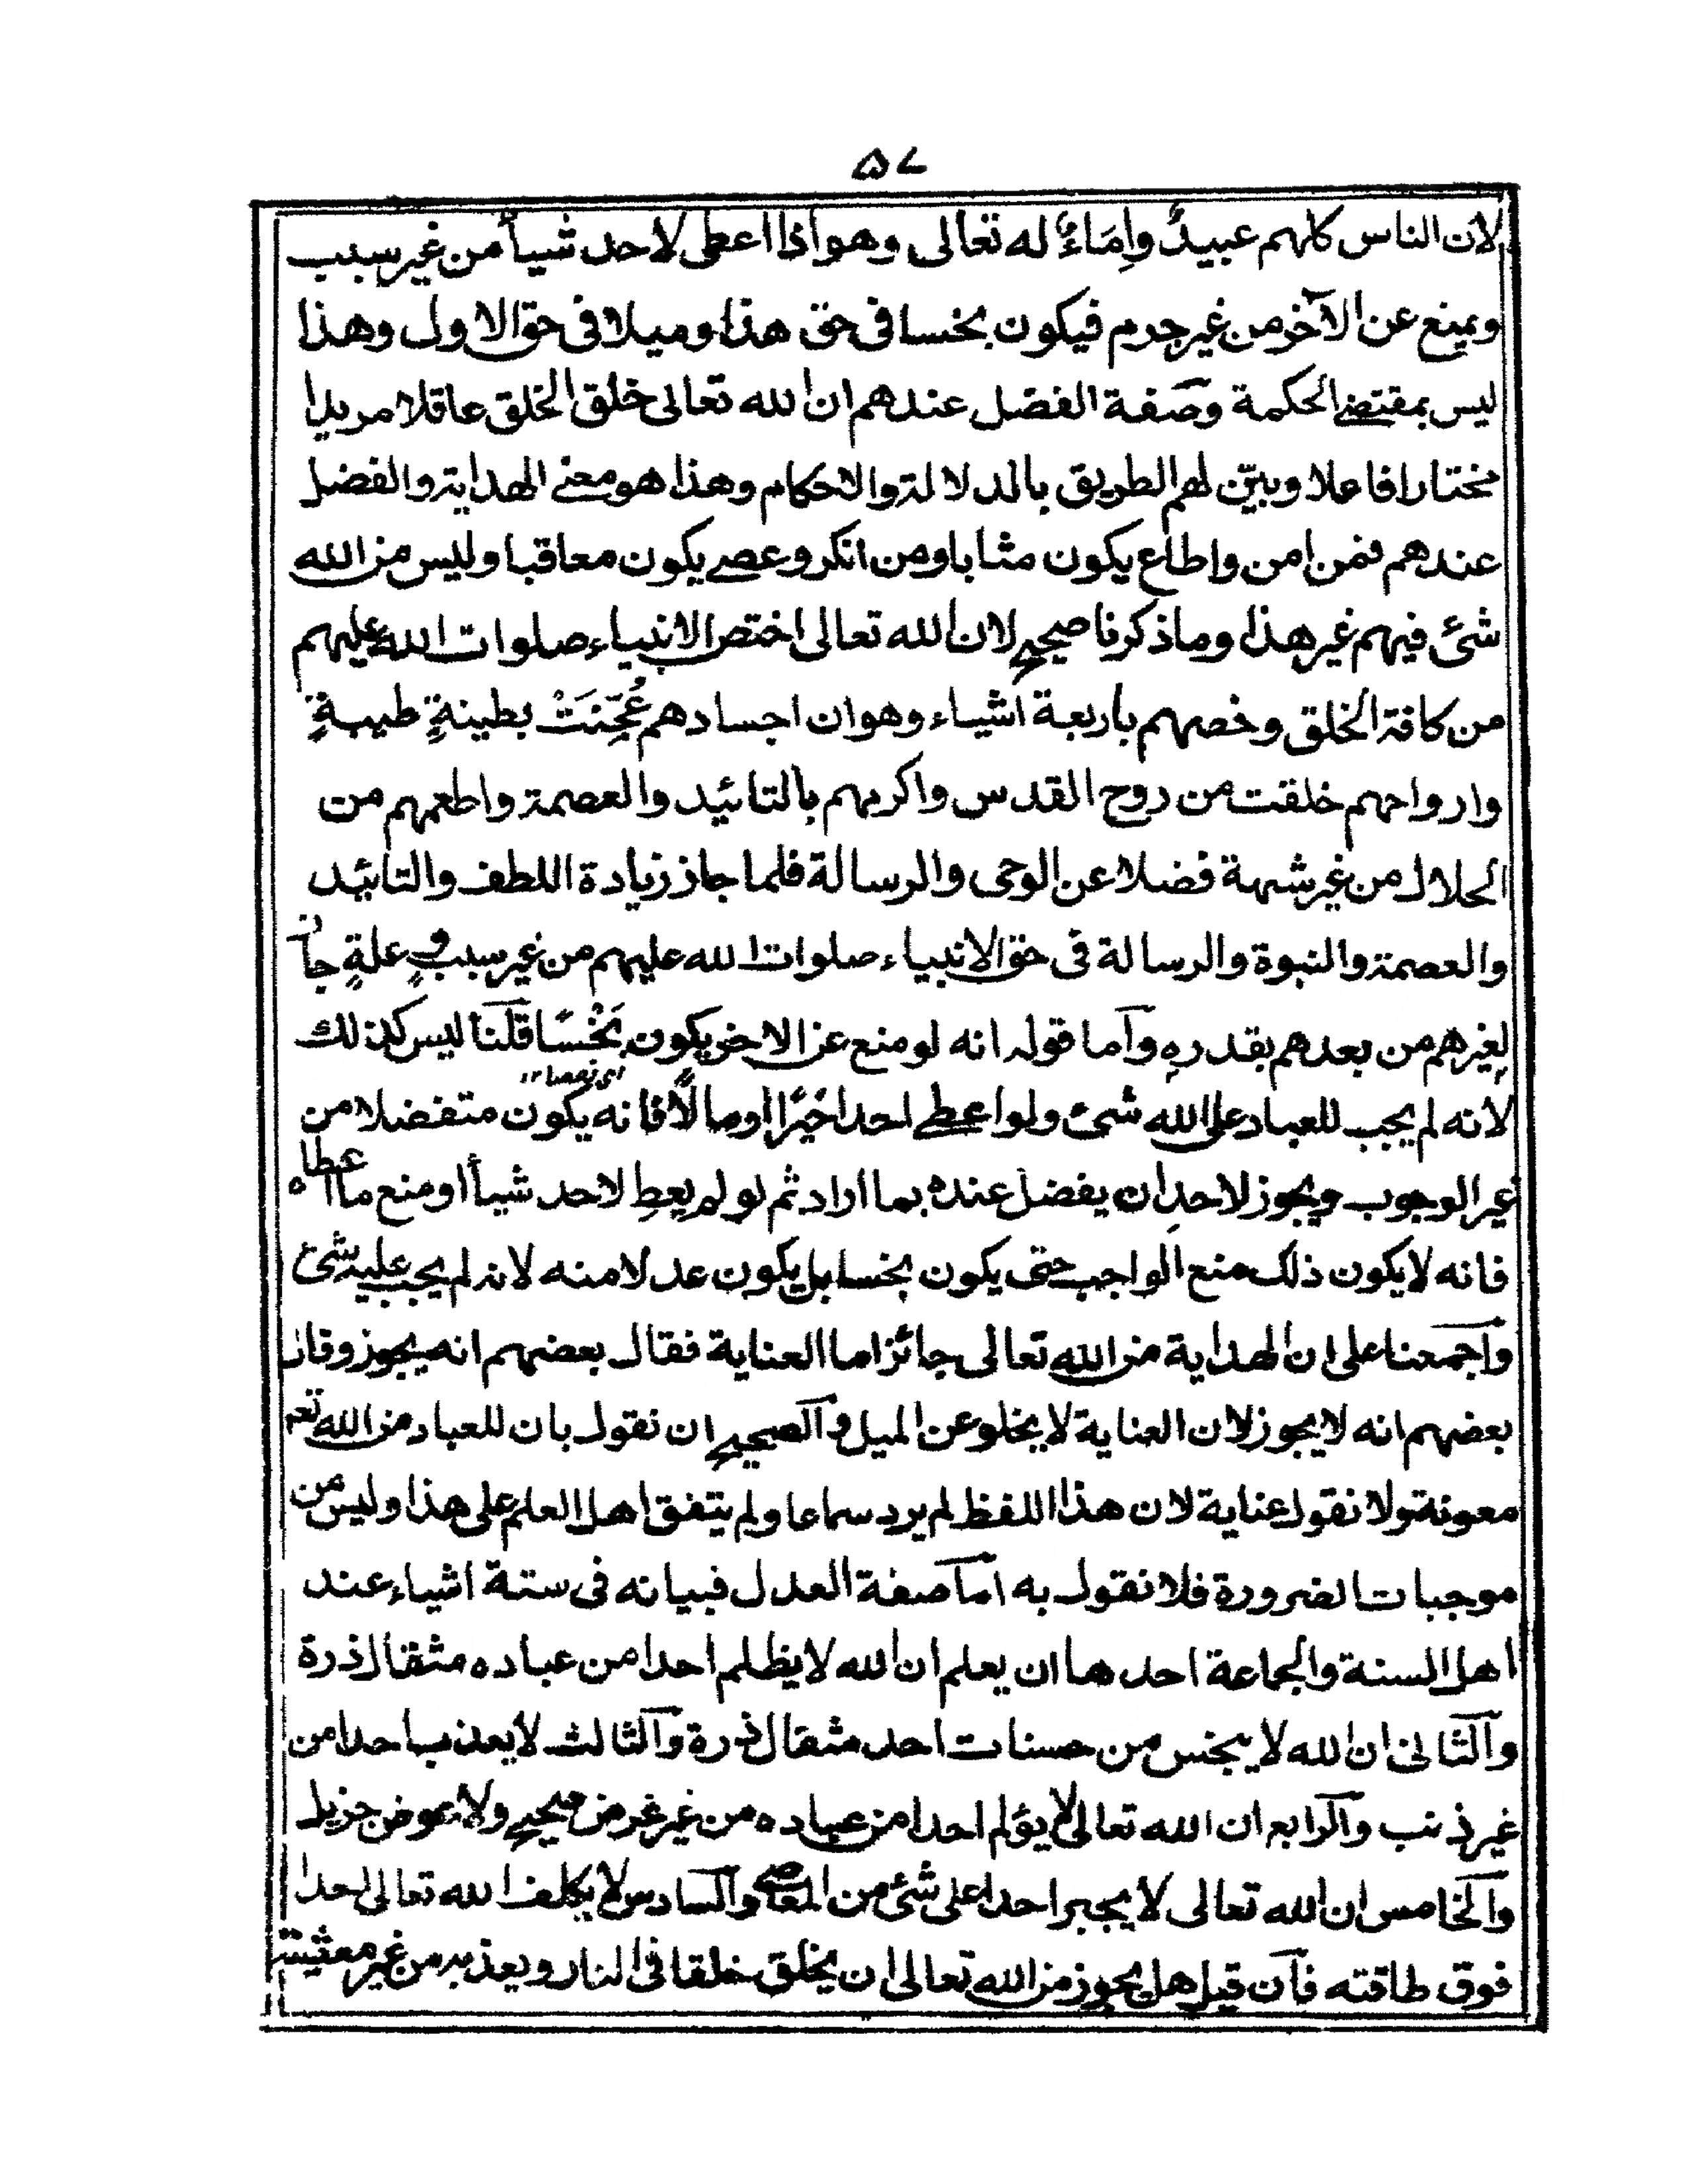 ٥٧
لان الناس كلهم عبيدٌ واِمَاءٌ له تعالى وهو اذا اعطى لاحد شيأ من غير سبب
ويمنع عن الآخر من غير جرم فيكون بخسا فى حق هذا وميلا فى حق الاول وهذا
ليس بمقتضى الحكمة وصفة الفضل عندهم ان الله تعالى خلق الخلق عاقلا مريدا
مختارا فاعلا وبيّن لهم الطريق بالدلالة والاحكام وهذا هو معنى الهداية والفضل
عندهم فمن امن واطاع يكون مثابا ومن انكر وعصى يكون معاقبا وليس من الله
شئ فيهم غير هذا وما ذكرنا صحيح لان الله تعالى اختص الانبياء صلوات الله عليهم
من كافة الخلق وخصهم باربعة اشياء وهو ان اجسادهم عُجِّنَتْ بطينةٍ طيبةٍ
وارواحهم خلقت من روح القدس واكرمهم بالتائيد والعصمة واطعمهم من
الحلال من غير شبهة فضلا عن الوحى والرسالة فلما جاز زيادة اللطف والتائيد
والعصمة والنبوة والرسالة فى حق الانبياء صلوات الله عليهم من غير سببٍ وعلةٍ جاز
لغيرهم من بعدهم بقدرهِ وآما قوله انه لو منع عن الاخر يكون بَخْسًا قلنا ليس كذلك
اى نقصا ١٢
لانه لم يجب للعباد على الله شئ ولو اعطى احدا خَيرًا او مالًا فانه يكون متفضلا من
غير الوجوب ويجوز لاحدِ ان يفضل عنده بما اراد ثم لو لم يعطِ لاحد شيأ او منع ما اعطاه
فانه لا يكون ذلك منع الواجب حتى يكون بخسا بل يكون عدلا منه لانه لم يجب عليه شئ
وآجمعنا على ان الهداية من الله تعالى جائز اما العناية فقال بعضهم انه يجوز وقال
بعضهم انه لا يجوز لان العناية لا يخلو عن الميل وآلصحيح ان نقول بان للعباد من الله تعم
معونة ولا نقول عناية لان هذا اللفظ لم يرد سماعا ولم يتفق اهل العلم على هذا وليس من
موجبات الضرورة فلا نقول به امآ صفة العدل فبيانه فى ستة اشياء عند
اهل السنة والجماعة احدها ان يعلم ان الله لا يظلم احدا من عباده مثقال ذرة
وآلثانى ان الله لا يبخس من حسنات احد مثقال ذرة وآلثالث لا يعذب احدا من
غير ذنب وآلرابع ان الله تعالى لا يؤلم احدا من عباده من غير غرض صحيح ولا عوض جزيل
وآلخامس ان الله تعالى لا يجبر احدا على شئ من المعاصى وآلسادس لا يكلف الله تعالى احدا
فوق طاقته فآن قيل هل يجوز من الله تعالى ان يخلق خلقا فى النار ويعذبه من غير معصية